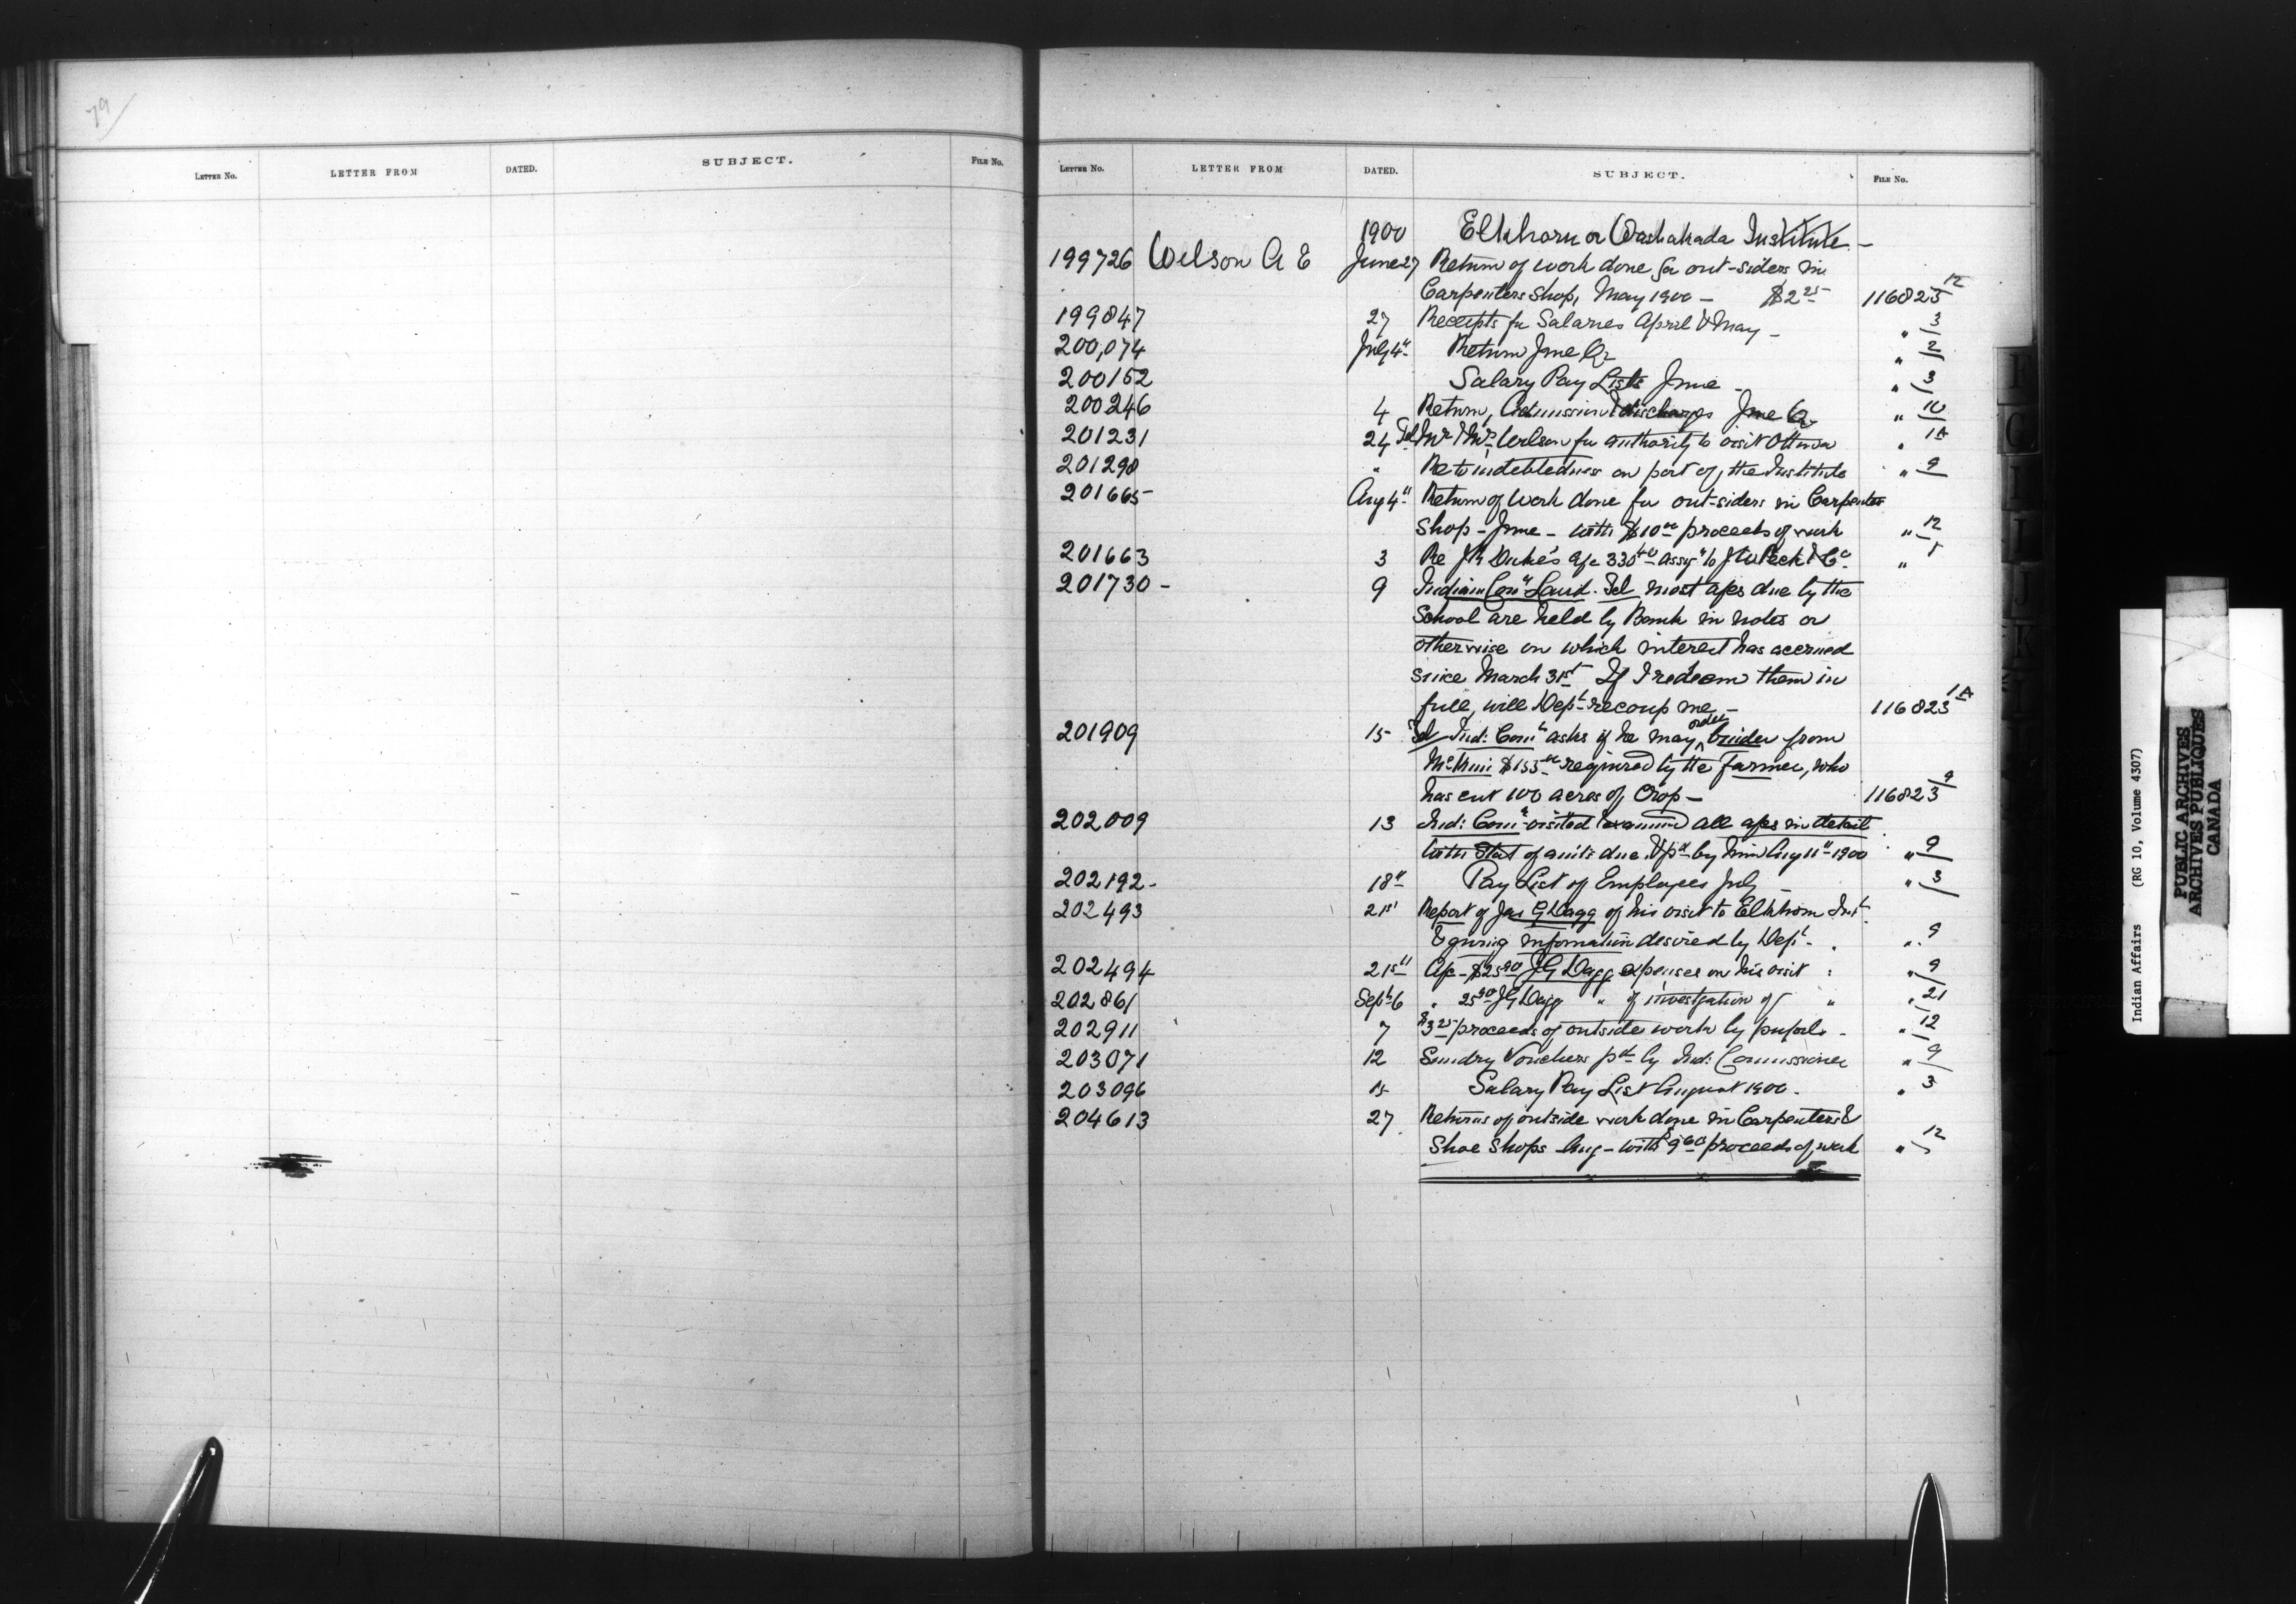 79
LETTER No. LETTER FROM DATED. SUBJECT. FILE No.
LETTER No. LETTER FROM DATED. SUBJECT. FILE No.
1900 Elkhorn or Washakada Institute -
199726 Wilson A E June 27 Return of work done for out-siders in
Carpenters Shop, May 1900 - $2 25 116823 12
199847 27 Receipts for Salaries April & May - " 3
200,074 July 4" Return June Qr " 2
200152 Salary Pay Lists June - " 3
200246 4 Return, Admission & discharges June Qr " 10
201231 24 Tel Mr & Mrs Wilson for authority to visit Ottawa " 1A
201298 " Re to indebtedness on part of, the Institute " 9
201665 Aug 4" Return of Work done for out-siders in Carpenter
Shop - June - with $10 00 proceeds of work " 12
201663 3 Re J R Duke's a/c 330 40 assg to J W Peck & Co "
201730 - 9 Indian Comr Laird. Tel most a/cs due by the
School are held by Bank in notes or
otherwise on which interest has accrued
since March 31st If I redeem them in
full, will Dept recoup me - 116823 1A
201909 15 Tel Ind: Comr asks if he may order binder from
$155 00 required by the farmer, who
has cut 100 acres of Crop - 116823 9
202009 13 Ind: Comr visited & examined all a/cs in detail
With Stat of amts due & pd by him Aug 11" 1900 " 9
202192 - 18" Pay List of Employees July - " 3
202493 21st Report of Jas G Dagg of his visit to Elkhorn Inst
& giving information desired by Dept - " 9
202494 21st A/c - $25 90 J G Dagg expenses on his visit : " 9
202861 Sept 6 " 25 90 J G Dagg " of investigation of " " 21
202911 7 $3 25 proceeds of outside work by pupils - " 12
203071 12 Sundry Vouchers pd by Ind: Commissioner " 9
203096 15 Salary Pay List August 1900. " 3
204613 27 Returns of outside work done in Carpenters &
Shoe Shops Aug - with $9 60 proceeds of work " 12
I
J
K
Indian Affairs (RG 10, Volume 4307)
PUBLIC ARCHIVES
ARCHIVES PUBLIQUES
CANADA